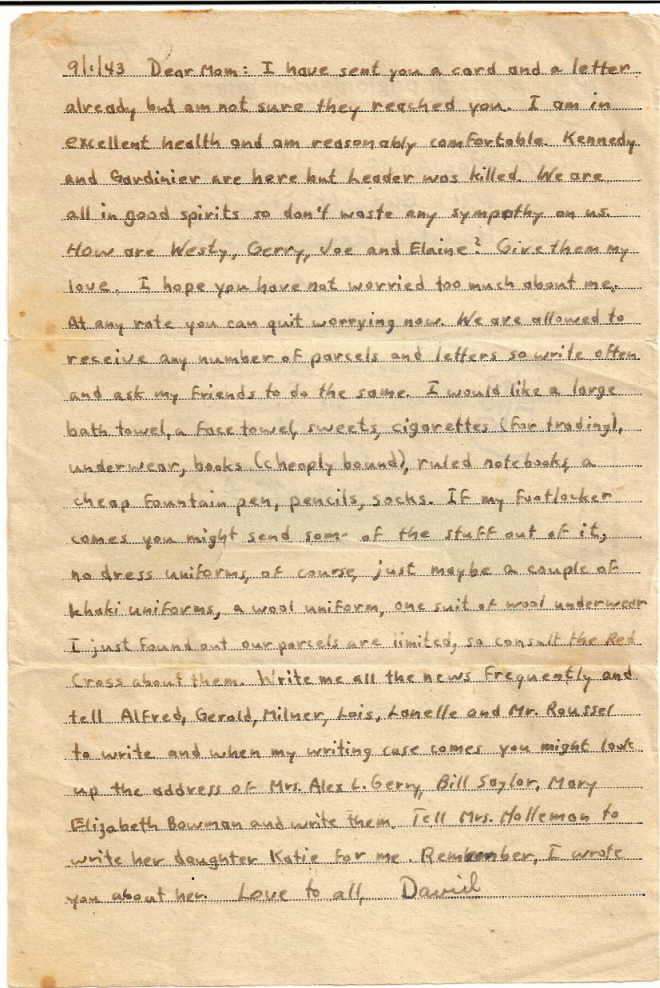 9/1/43 Dear Mom: I have sent you a card and a letter
already but am not sure they reached you. I am in
excellent health and am reasonably comfortable. Kennedy
and Gardinier are here but Leader was killed. We are
all in good spirits so don't waste any sympathy on us.
How are Westy, Gerry, Joe and Elaine? Give them my
love. I hope you have not worried too much about me.
At any rate you can quit worrying now. We are allowed to
receive any number of parcels and letters so write often
and ask my friends to do the same. I would like a large
bath towel, a face towel, sweets, cigarettes (for trading),
underwear, books (cheaply bound), ruled notebooks, a
cheap fountain pen, pencils, socks. If my footlocker
comes you might send some of the stuff out of it,
no dress uniforms, of course, just maybe a couple of
khaki uniforms, a wool uniform, one suit of wool underwear
I just found out our parcels are limited, so consult the Red
Cross about them. Write me all the news frequently and
tell Alfred, Gerald, Milner, Lois, Lanelle and Mr. Roussel
to write and when my writing case comes you might look
up the address of Mrs. Alex L. Gerry, Bill Saylor, Mary
Elizabeth Bowman and write them. Tell Mrs. Holleman to
write her daughter Katie for me. Remember, I wrote
you about her. Love to all, David